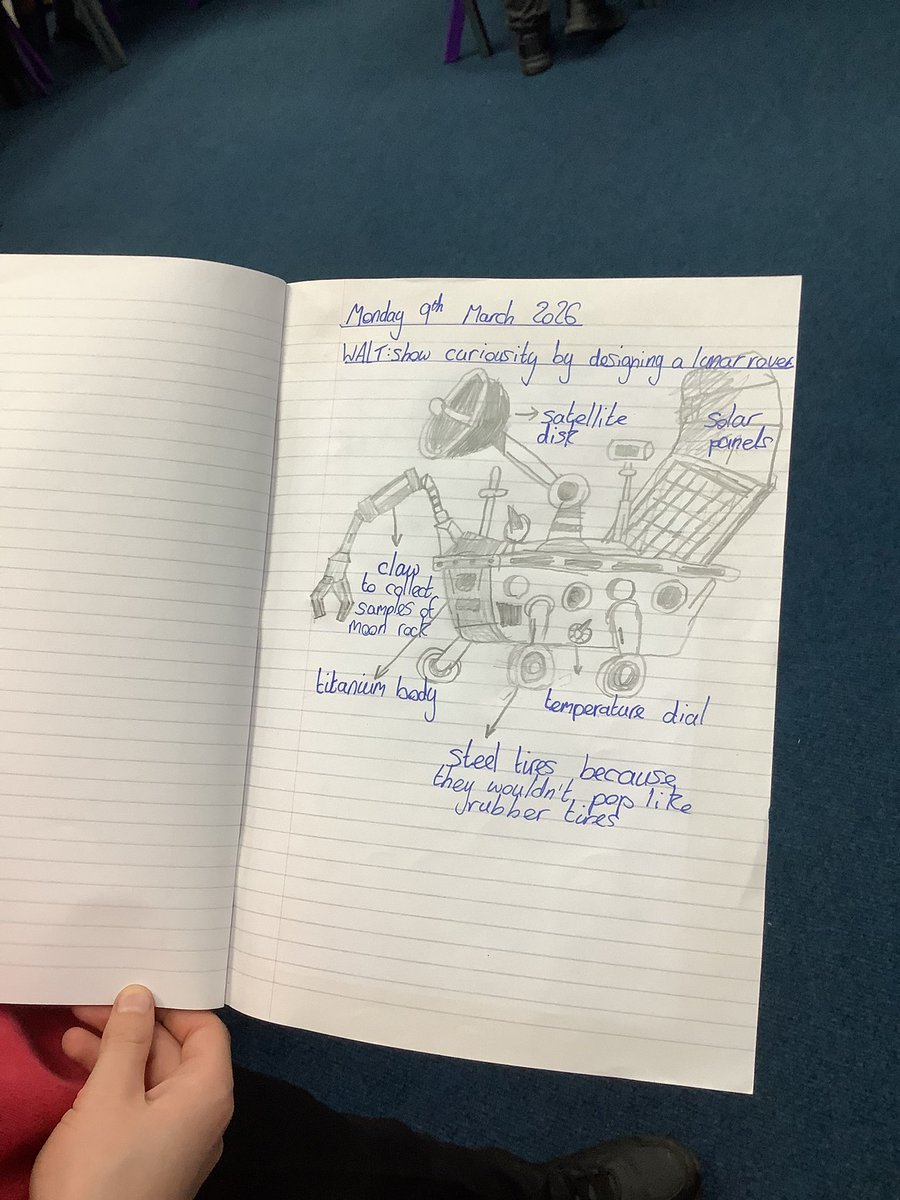 Monday 9th March 2026
WALT: show curiousity by designing a lunar rover
satellite
disk
solar
panels
claw
to collect
samples of
moon rock
titanium body
temperature dial
steel tires because
they wouldn't pop like
rubber tires